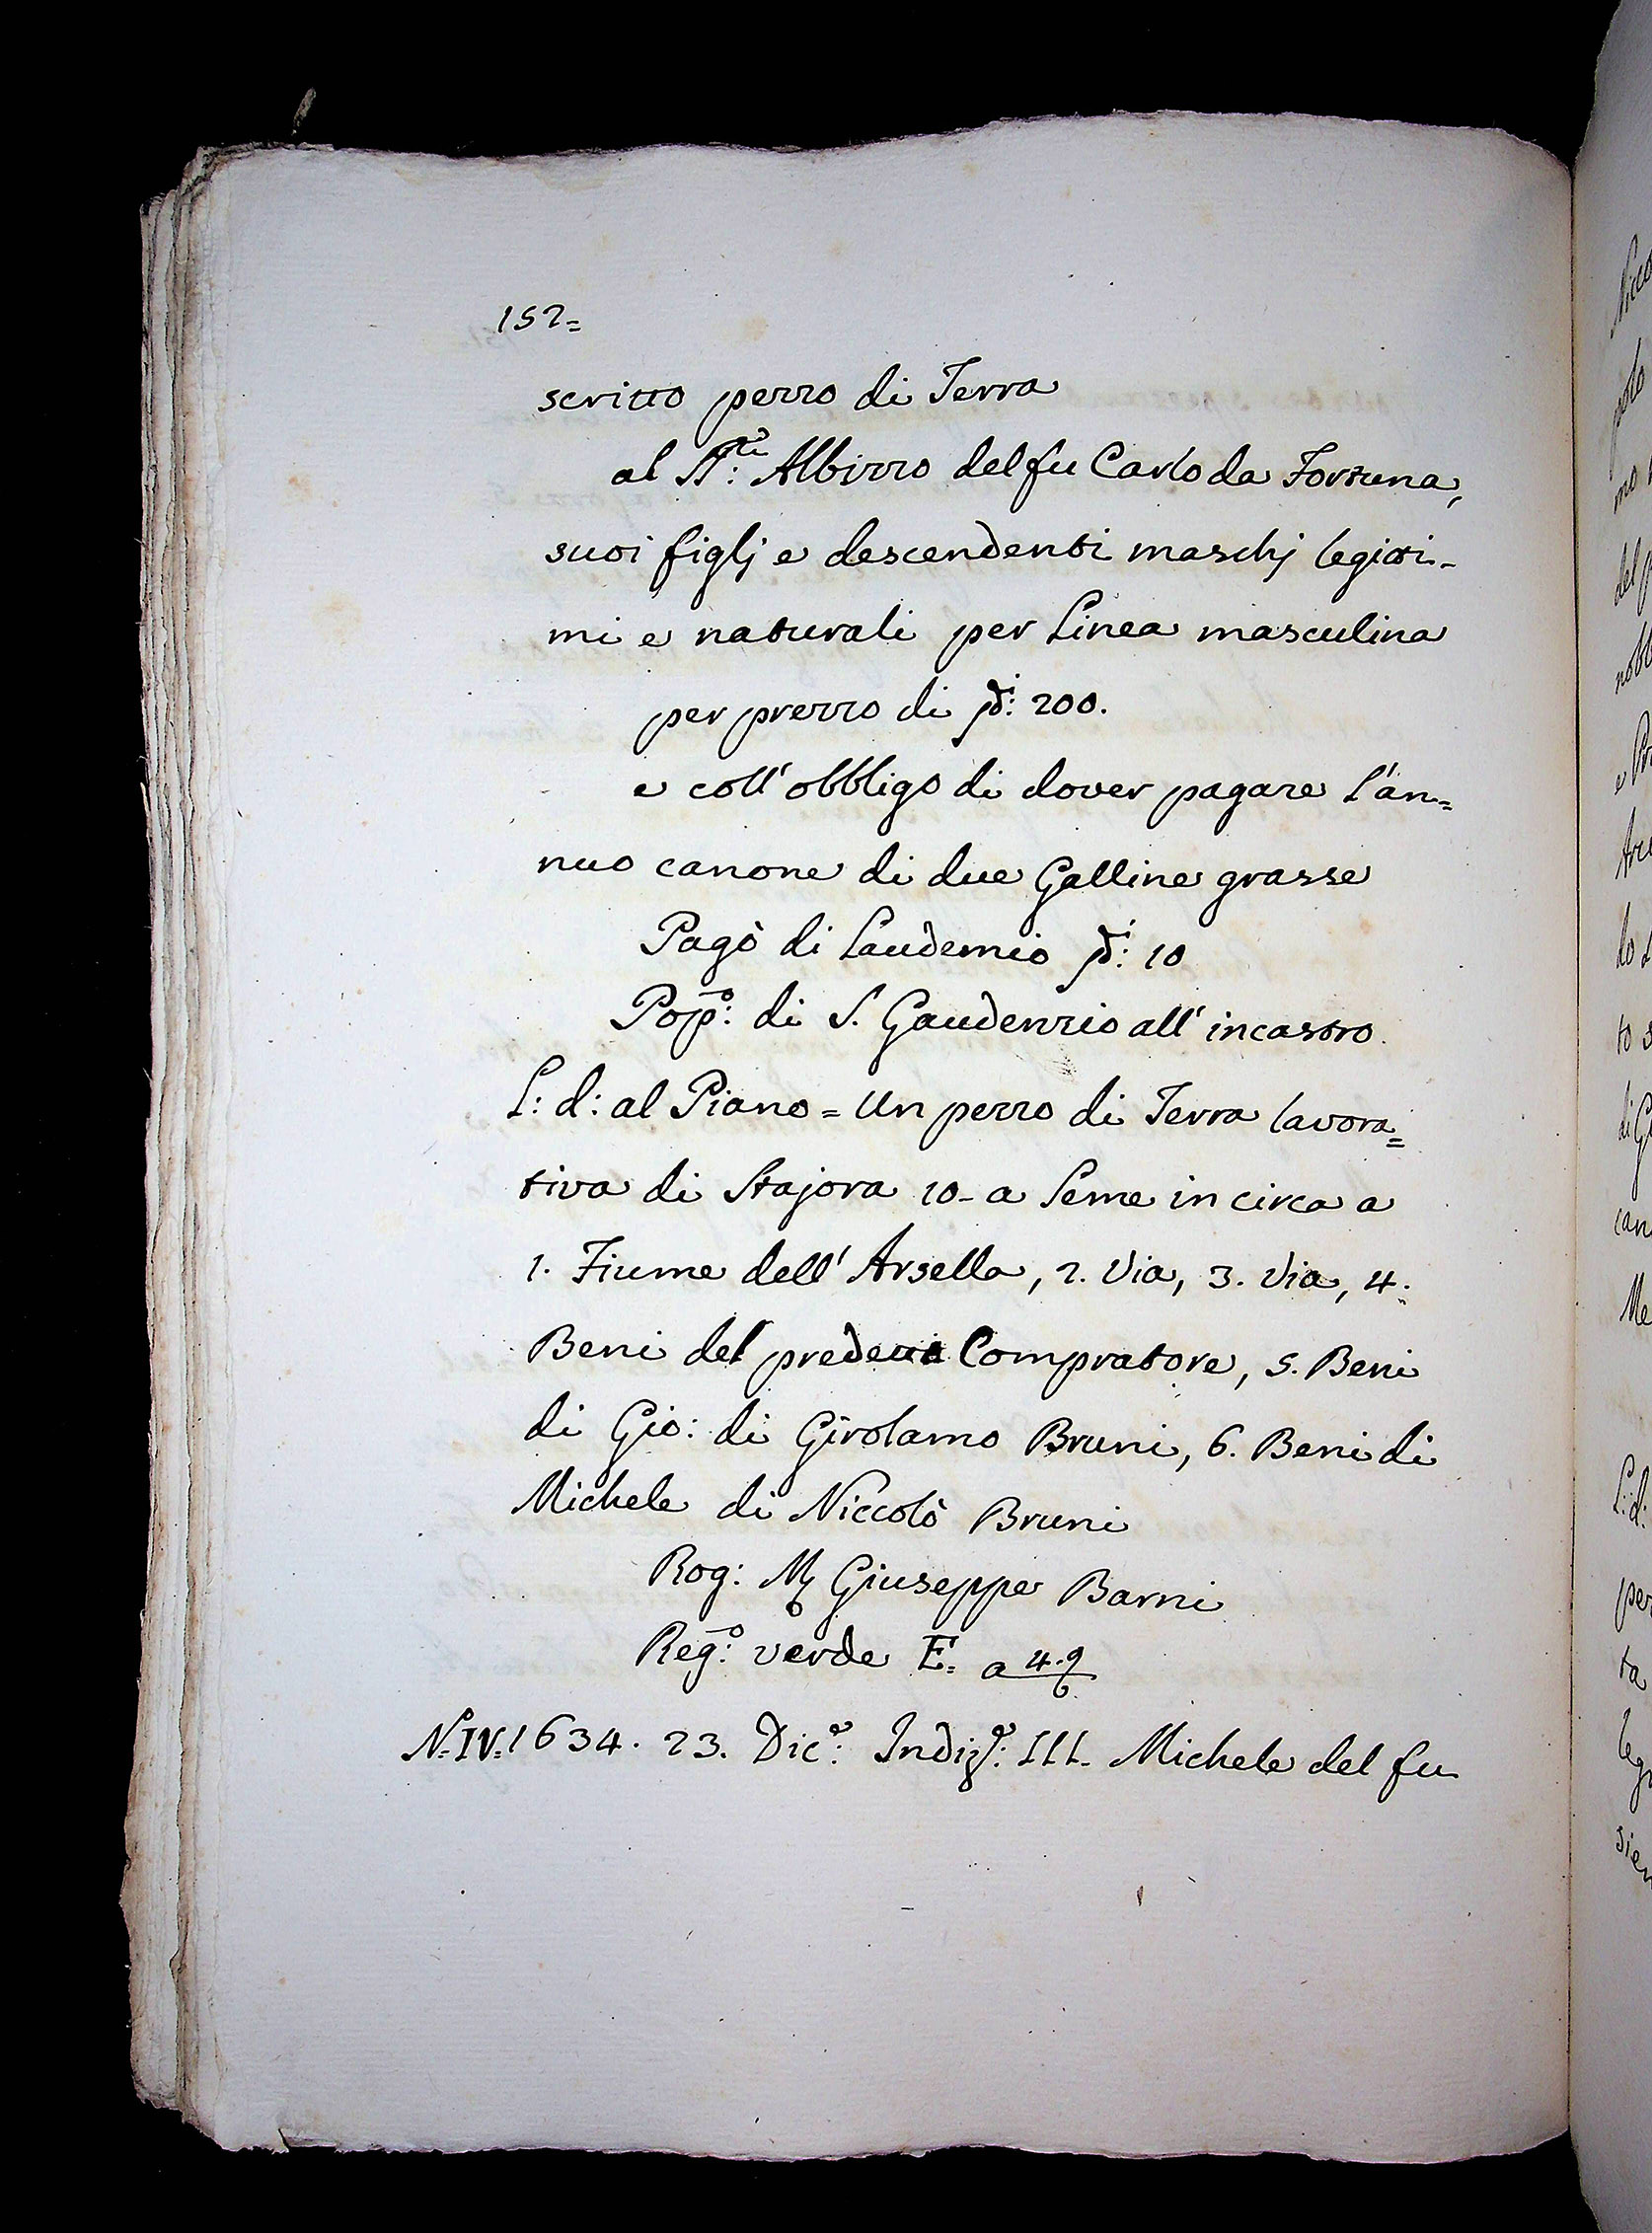 152=
scritto pezzo di Terra
al Albizzo del fu Carlo da Fortuna,
suoi figlj e descendenti maschj legitti-
mi e naturali per Linea masculina
per prezzo di 200.
e coll' obbligo di dover pagare l'an=
nuo canone di due Galline grasse
Pagò di Laudemio 10
Pop:o di S. Gaudenzio all' incastro
L: d: al Piano = Un pezzo di Terra lavora=
tiva di Stajora 10 - a Seme in circa a
1. Fiume dell' Arsella, 2. Via, 3. Via, 4.
Beni del predetto Compratore, 5. Beni
di Gio: di Girolamo Bruni, 6. Beni di
Michele di Niccolò Bruni
Rog: Giuseppe Barni
Reg:o verde E= a 49
N.IV. 1634. 23. Dic:e Indiz:e III. Michele del fu